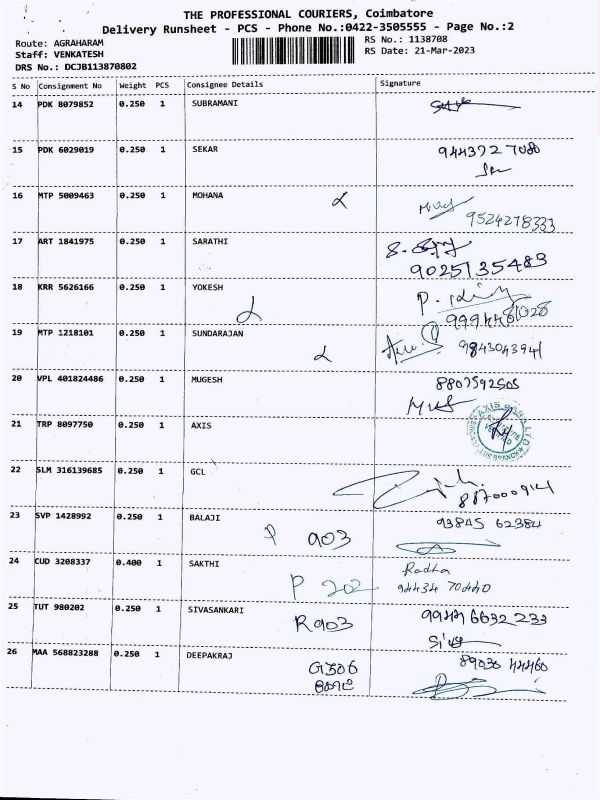 THE PROFESSIONAL COURIERS, Coimbatore
Delivery Runsheet - PCS - Phone No.:0422-3505555 - Page No.:2
Route: AGRAHARAM
Staff: VENKATESH
DRS No.: DCJB113870802
RS No.: 1138708
RS Date: 21-Mar-2023
S No Consignment No Weight PCS Consignee Details Signature
14 PDK 8079852 0.250 1 SUBRAMANI
15 PDK 6029019 0.250 1 SEKAR 9443727080
16 MTP 5009463 0.250 1 MOHANA
9524278333
17 ART 1841975 0.250 1 SARATHI
9025135483
18 KRR 5626166 0.250 1 YOKESH
19 MTP 1218101 0.250 1 SUNDARAJAN 9843043941
20 VPL 401824486 0.250 1 MUGESH 8807592505
21 TRP 8097750 0.250 1 AXIS
22 SLM 316139685 0.250 1 GCL
23 SVP 1428992 0.250 1 BALAJI 93845 62384
P 903
24 CUD 3208337 0.400 1 SAKTHI Radha
P 202 94434 70440
25 TUT 980202 0.250 1 SIVASANKARI
R903
26 MAA 568823288 0.250 1 DEEPAKRAJ 89035 44460
G306